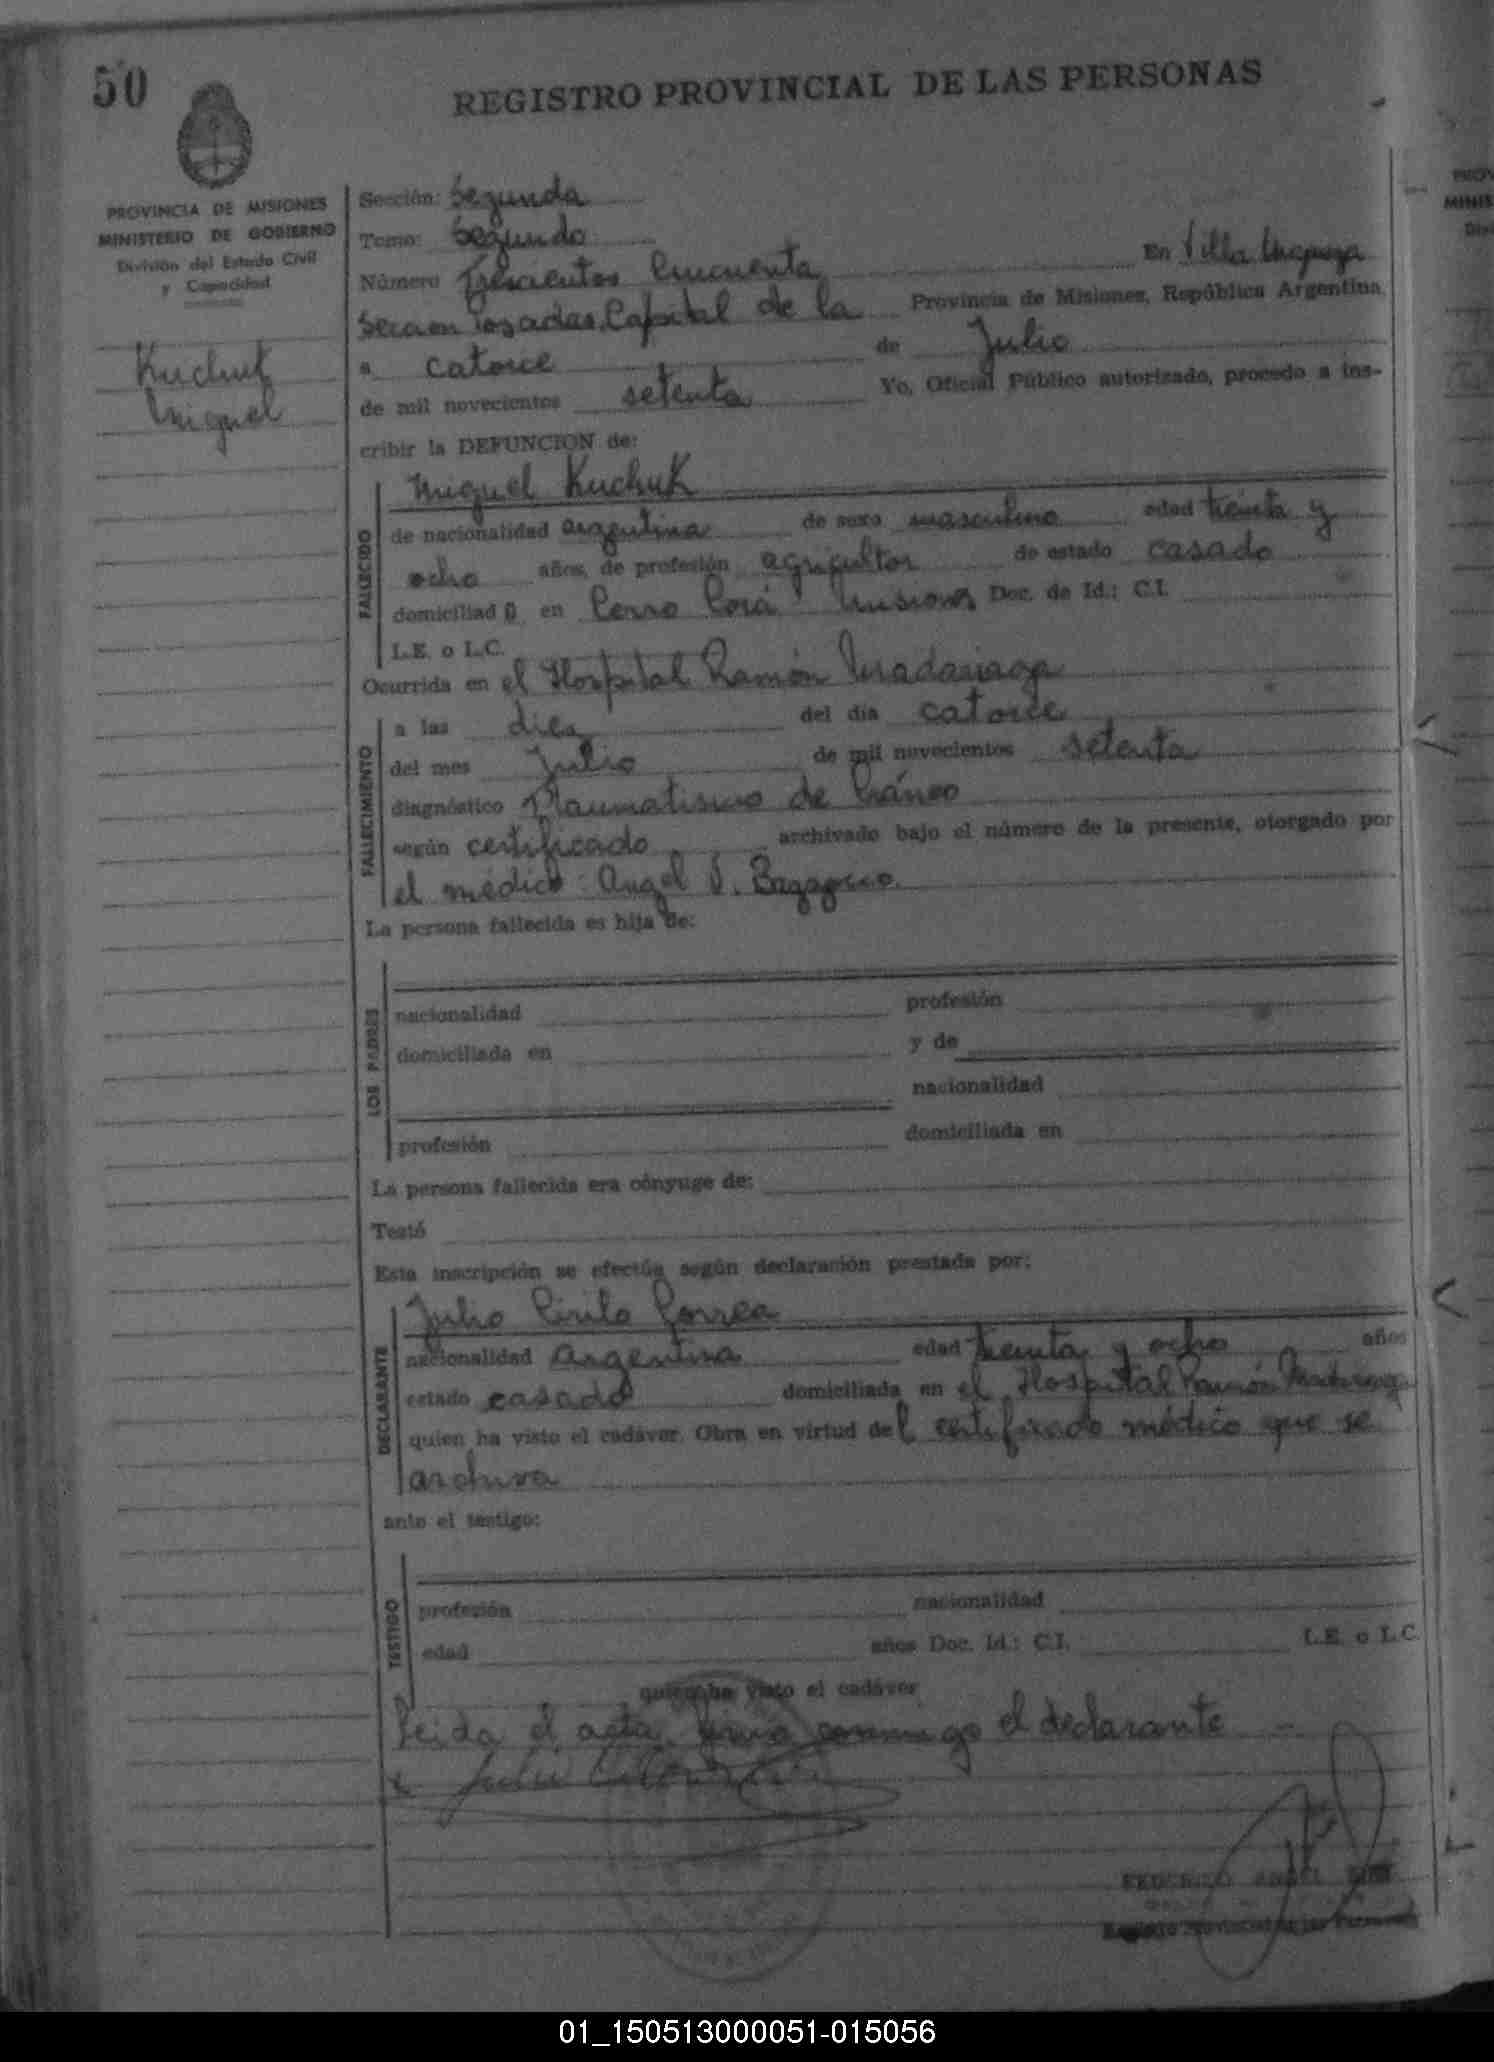 50
REGISTRO PROVINCIAL DE LAS PERSONAS
PROVINCIA DE MISIONES
MINISTERIO DE GOBIERNO
División del Estado Civil
y Capacidad
Kuchuk
Miguel
Sección: Segunda
Tomo: Segundo
Número Trescientos Cincuenta En Villa Urquiza
Posadas, Capital de la Provincia de Misiones, República Argentina,
a catorce de Julio
de mil novecientos setenta Yo, Oficial Público autorizado, procedo a ins-
cribir la DEFUNCION de:
FALLECIDO
Miguel Kuchuk
de nacionalidad argentina de sexo masculino edad treinta y
ocho años, de profesión agricultor de estado casado
domiciliad o en Cerro Corá Misiones Doc. de Id.: C.I.
L.E. o L.C.
Ocurrida en el Hospital Ramón Madariaga
FALLECIMIENTO
a las diez del día catorce
del mes Julio de mil novecientos setenta
diagnóstico Traumatismo de Cráneo
según certificado archivado bajo el número de la presente, otorgado por
el médico: Angel
La persona fallecida es hija de:
LOS PADRES
nacionalidad profesión
domiciliada en y de
nacionalidad
profesión domiciliada en
La persona fallecida era cónyuge de:
Testó
Esta inscripción se efectúa según declaración prestada por:
DECLARANTE
Julio Cirilo Correa
nacionalidad Argentina edad treinta y ocho años
estado casado domiciliada en el Hospital Ramón Madariaga
quien ha visto el cadáver. Obra en virtud del certificado médico que se
archiva
ante el testigo:
TESTIGO
profesión nacionalidad
edad años Doc. Id.: C.I. L.E. o L.C.
quien ha visto el cadáver
Leida el acta firma conmigo el declarante
FEDERICO ANGEL
Registro Provincial de las Personas
PROV
MINIS
Divi
01_150513000051-015056